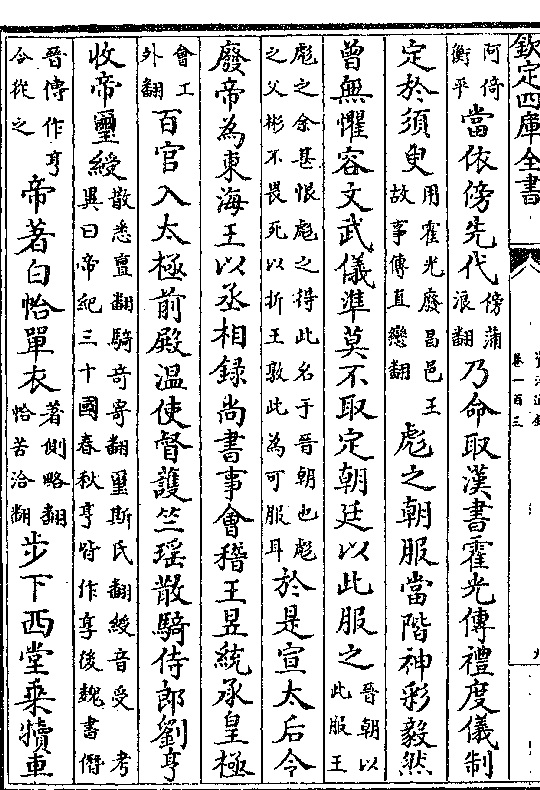 欽定四庫全書
卷一百三
阿倚衡平當依傍先代傍蒲浪翻乃命取漢書霍光傳禮度儀制
定於須臾用霍光廢昌邑王故事傳直戀翻彪之朝服當階神彩毅然
曾無懼容文武儀準莫不取定朝廷以此服之晉朝以此服王
彪之余甚恨彪之得此名于晉朝也彪之父彬不畏死以折王敦此為可服耳於是宣太后令
廢帝為東海王以丞相録尚書事會稽王昱統承皇極
會工外翻百官入太極前殿溫使督護竺瑶散騎侍郎劉亨
收帝璽綬散悉亶翻騎竒寄翻璽斯氏翻綬音受考異曰帝紀三十國春秋亨皆作享後魏書僭
晉傳作亨今從之帝著白帢單衣著側略翻帢苦洽翻步下西堂乘犢車